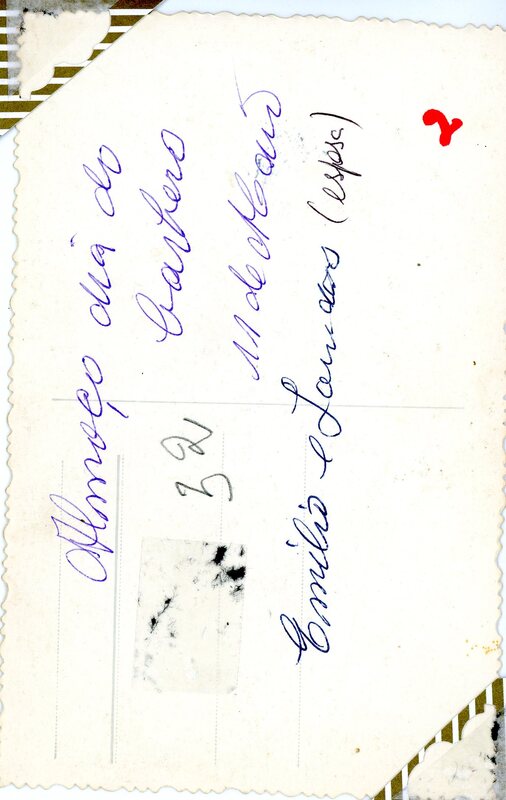 Almoço dia do
barbero
32
11 de Maio
Emilio e Lourdes (esposa)
2